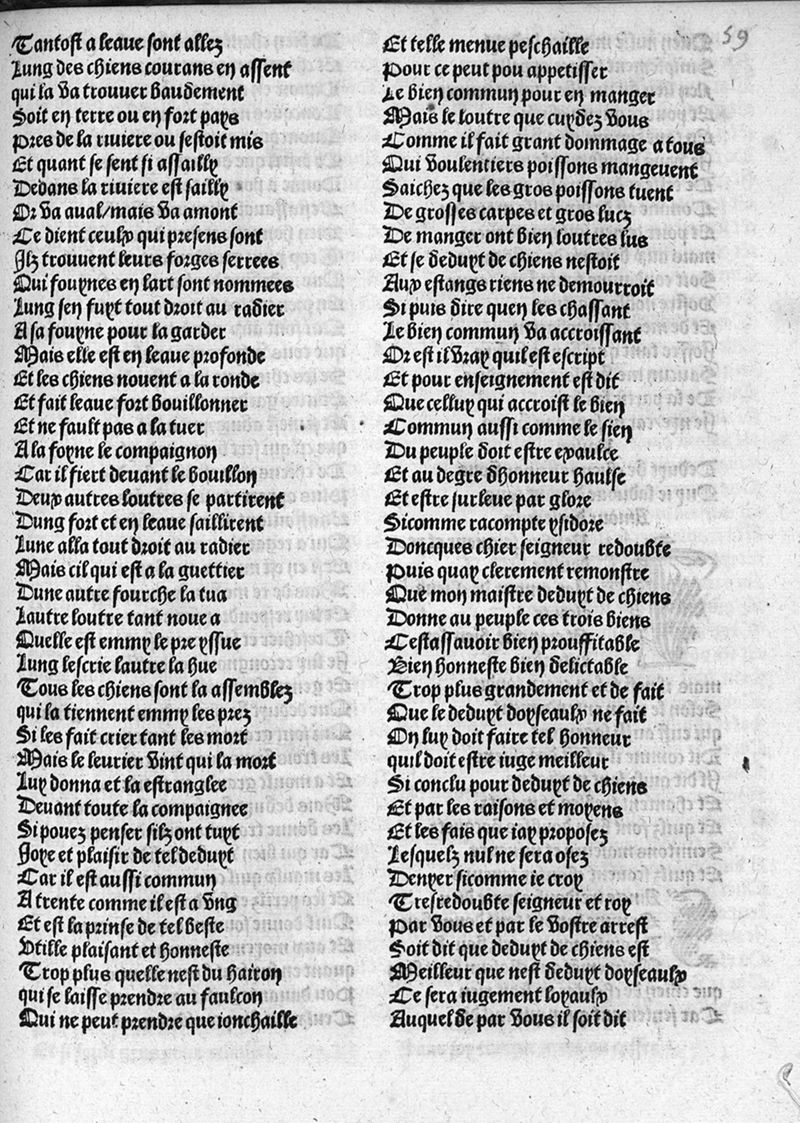 59
Tantost a leaue sont allez
Lung des chiens courans en assent
qui la va trouuer baudement
Soit en terre ou en fort pays
pres de la riuiere ou sestoit mis
Et quant se sent si assailly
Dedans la riuiere est sailly
Or va aual/mais va amont
Ce dient ceulx qui presens sont
Ilz trouuent leurs forges serrees
Qui fouynes en lart sont nommees
Lung sen fuyt tout droit au radier
A sa fouyne pour la garder
Mais elle est en leaue profonde
Et les chiens nouent a la ronde
Et fait leaue fort bouillonner
Et ne fault pas a la tuer
A la foyne le compaignon
Car il fiert deuant le bouillon
Deux autres loutres se partirent
Dung fort et en leaue saillirent
Lune alla tout droit au radier
Mais cil qui est a la guettier
Dune autre fourche la tua
Lautre loutre tant noue a
Quelle est emmy le pre yssue
Lung lescrie lautre la hue
Tous les chiens sont la assemblez
qui la tiennent emmy les prez
Si les fait crier tant les mort
Mais le leurier vint qui la mort
Luy donna et la estranglee
Deuant toute la compaignee
Si pouez penser silz ont tuyt
Joye et plaisir de tel deduyt
Car il est aussi commun
A trente comme il est a vng
Et est la prinse de tel beste
Vtille plaisant et honneste
Trop plus quelle nest du hairon
qui se laisse prendre au faulcon
Qui ne peut prendre que ionchaille
Et telle menue peschaille
Pour ce peut pou appetisser
Le bien commun pour en manger
Mais le loutre que cuydez vous
Comme il fait grant dommage a tous
Qui voulentiers poissons mangeuent
Saichez que les gros poissons tuent
De grosses carpes et gros lucz
De manger ont bien loutres lus
Et se deduyt de chiens nestoit
Aux estangs riens ne demourroit
Si puis dire quen les chassant
Le bien commun va accroissant
Or est il vray quil est escript
Et pour enseignement est dit
Que celluy qui accroist le bien
Commun aussi comme le sien
Du peuple doit estre exaulce
Et au degre dhonneur haulse
Et estre surleue par glore
Sicomme racompte ysidore
Doncques chier seigneur redoubte
Puis quay clerement remonstre
Que mon maistre deduyt de chiens
Donne au peuple ces trois biens
Cestassauoir bien prouffitable
Bien honneste bien delictable
Trop plus grandement et de fait
Que le deduyt doyseaulx ne fait
On luy doit faire tel honneur
quil doit estre iuge meilleur
Si conclu pour deduyt de chiens
Et par les raisons et moyens
Et les fais que iay proposez
Lesquelz nul ne sera osez
Denyer sicomme ie croy
Tresredoubte seigneur et roy
Par vous et par le vostre arrest
Soit dit que deduyt de chiens est
Meilleur que nest deduyt doyseaulx
Ce sera iugement loyaulx
Auquel de par vous il soit dit